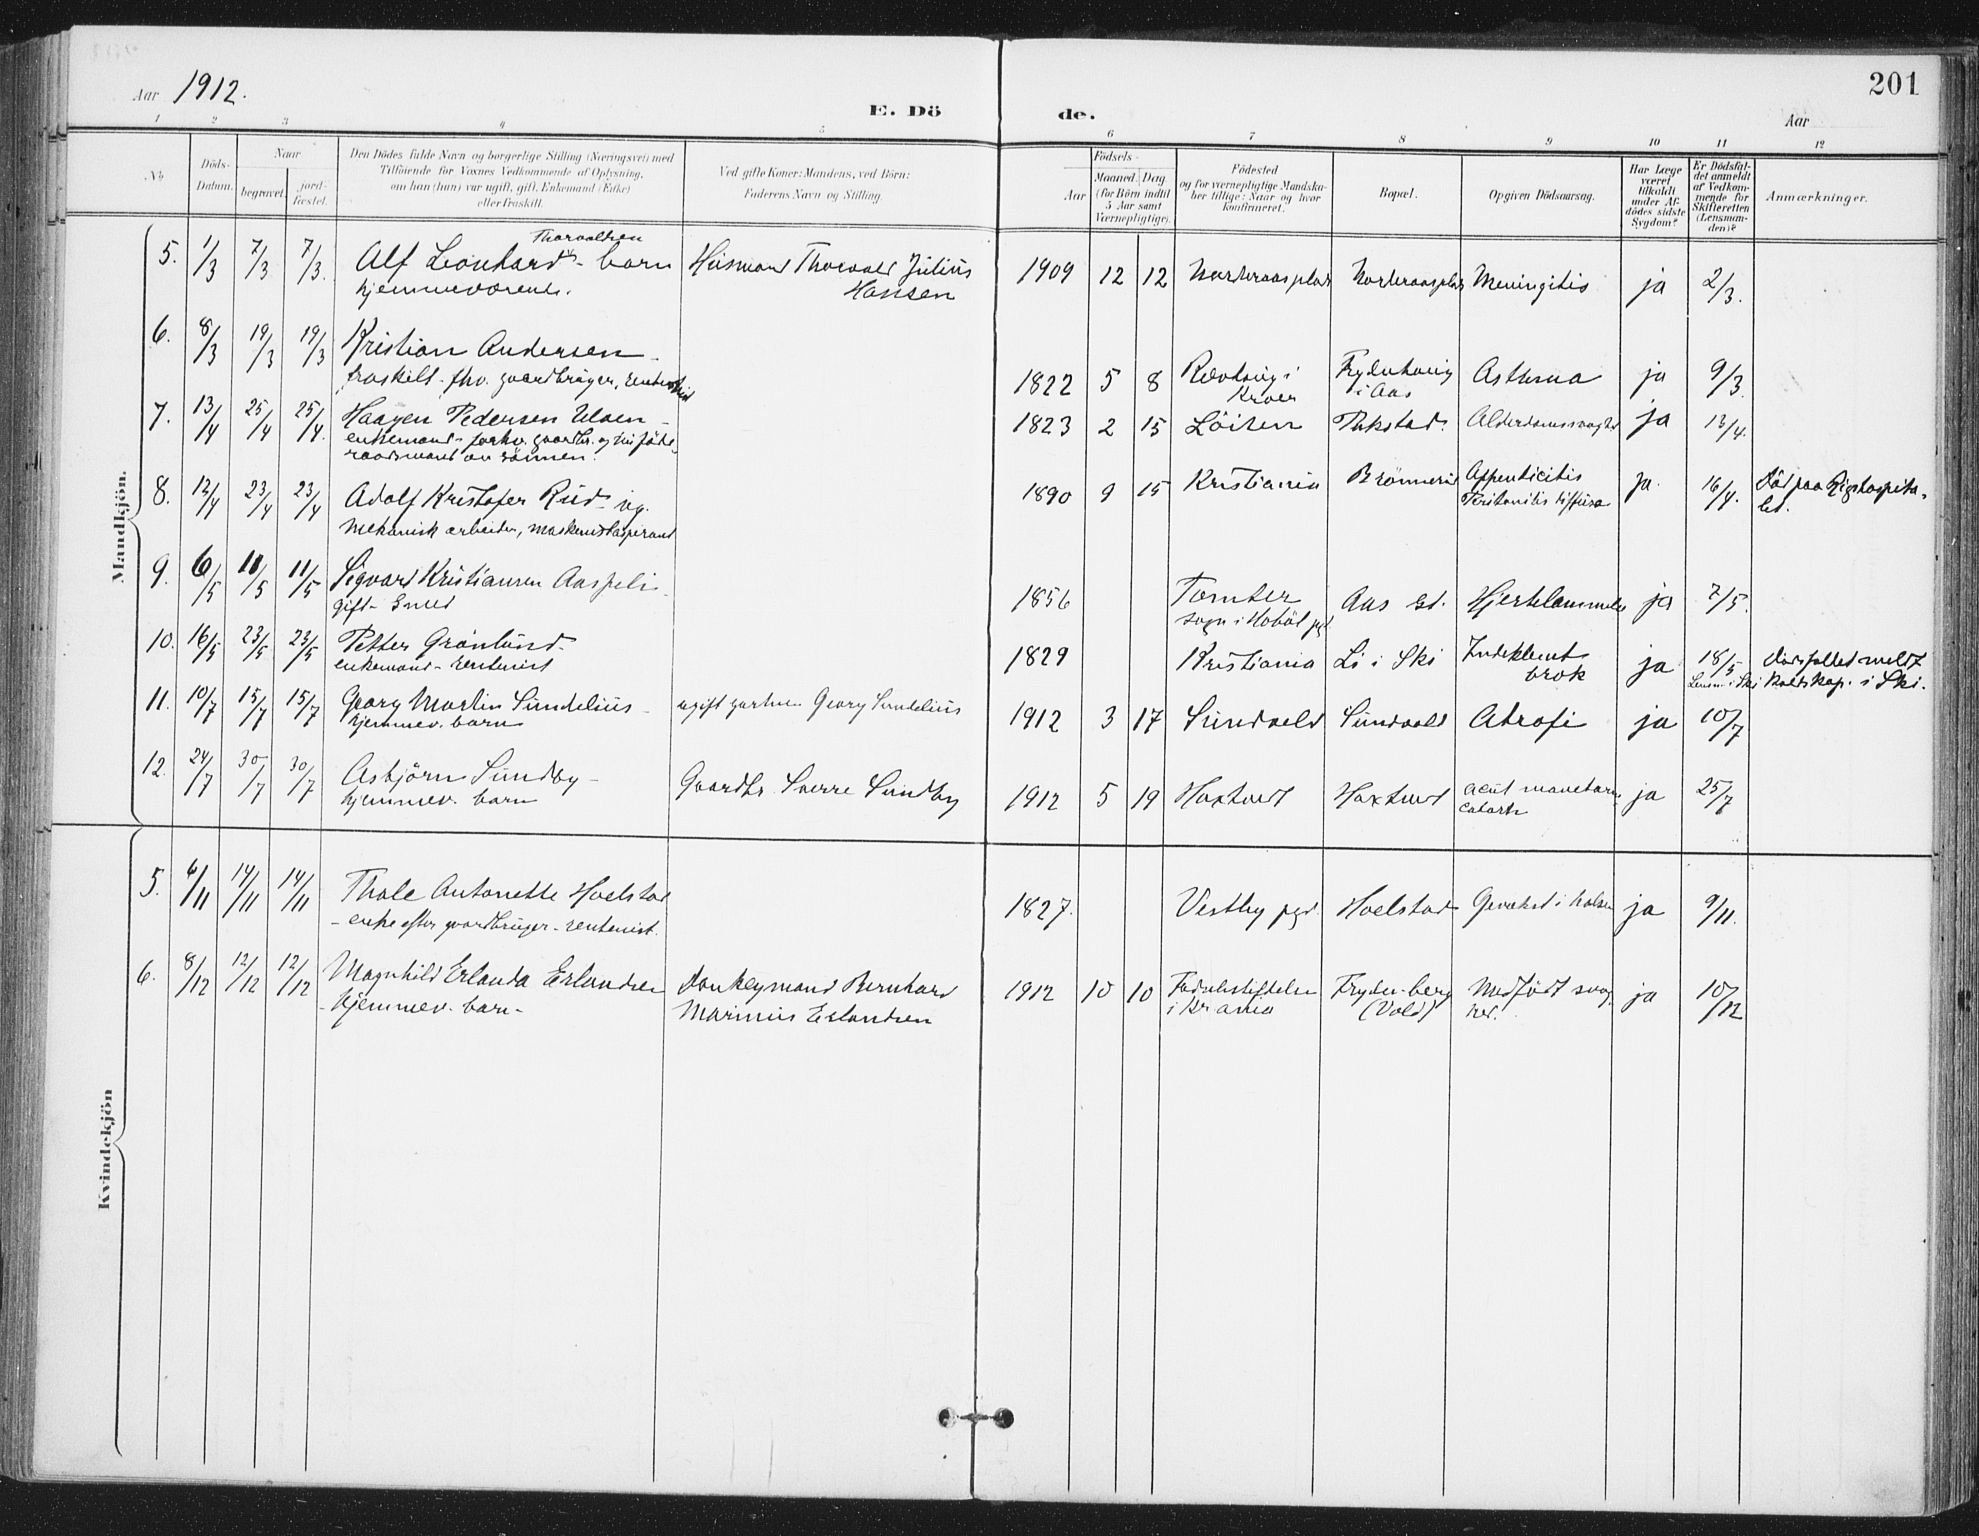 201
Aar 1912.
E. Dö de.
Aar
1 2 3 4 5 6 7 8 9 10 11 12
No.
Döds-Datum.
Naar
begravet.
jord-fæstet.
Den Dödes fulde Navn og borgerlige Stilling (Næringsvei) med
Tilföiende for Voxnes Vedkommende af Oplysning,
om han (hun) var ugift, gift, Enkemand (Enke)
eller fraskilt.
Ved gifte Koner: Mandens, ved Börn:
Faderens Navn og Stilling.
Födsels-
Aar
Maaned. Dag
(for Börn indtil
5 Aar samt
Værnepligtige).
Födested
og for værnepligtige Mandska-
ber tillige: Naar og hvor
konfirmeret.
Bopæl.
Opgiven Dödsaarsag.
Har Læge
været
tilkaldt
under Af-
dödes sidste
Sygdom?
Er Dödsfal-
det anmeldt
af Vedkom-
mende for
Skifteretten
(Lensman-
den)?
Anmærkninger.
Mandkjön.
Thorvaldsen
5. 1/3 7/3 7/3. Alf Leonhard - barn Husmand Thorvald Julius 1909 12 12 Norderaasplads Norderaasplads Meningitis ja 2/3.
hjemmeværende. Hansen
6. 8/3 19/3 19/3 Kristian Andersen -
fraskilt - fhv. gaardbruger, rentenist 1822 5 8 Rævhaug i Frydenhaug Asthma ja 9/3.
Kroer i Aas
7. 13/4 25/4 25/4. Haagen Pedersen Ulven - 1823 2 15 Löiten Tukstad. Alderdomssvaghed ja 13/4.
enkemand - forhv. gaardb. og nu föde-
raadsmand av sönnen.
8. 12/4 23/4 23/4 Adolf Kristofer Rud - ug. 1890 9 15 Kristiania Brönnerud Appenticitis ja. 16/4. Död paa Rigshospita-
mekanisk arbeider, maskinistaspirant Peritonitis diffusa let.
9. 6/5 11/5 11/5 Sigvard Kristiansen Aaspeli - 1856 Tomter Aas st. Hjertelammelse ja 7/5.
gift - Smed sogn i Hobøl pgd
10. 16/5 23/5 23/5 Petter Grönlund - 1829 Kristiania Li i Ski Indeklemt ja 18/5 dödsfaldet meldt
enkemand - rentenist brok Lensm. i Ski i Ski.
11. 10/7 15/7 15/7 Georg Martin Sundelius - ugift gartner Georg Sundelius 1912 3 17 Sundvold Sundvold Atrofi ja 10/7
hjemmev. barn
12. 24/7 30/7 30/7 Asbjörn Sundby - Gaardbr. Sverre Sundby 1912 5 19 Haxtvedt Haxtvedt acut ja 25/7
hjemmev. barn catarrh
Kvindekjön
5. 6/11 14/11 14/11 Thale Antonette Hoelstad 1827. Vestby pgd. Hoelstad Gevækst i halsen ja 9/11.
- enke efter gaardbruger - rentenist.
6. 8/12 12/12 12/12 Magnhild Erlanda Erlandsen Donkeymand Bernhard 1912 10 10 Födselsstiftelsen Frydenberg Medfödt svag- ja 10/12
- hjemmev. barn - Marinius Erlandsen i Kr.ania (Vold) hed.